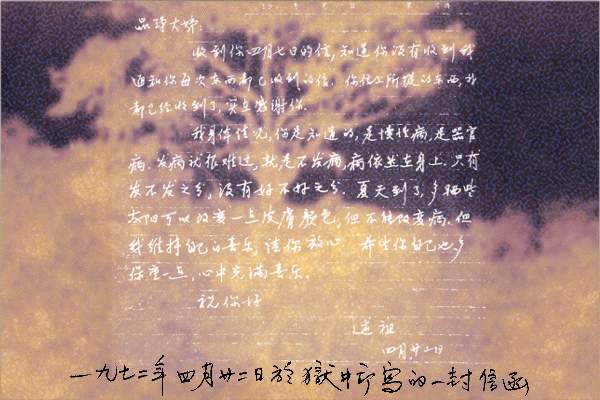 品琇大姊：
收到你四月七日的信，知道你没有收到我
通知你每次东西都已收到的信。你信上所提的东西，我
都已经收到了，实在感谢你。
我身体情况，你是知道的，是慢性病，是器官
病。发病就很难过，就是不发病，病依然在身上。只有
发不发之分，没有好不好之分。夏天到了，多晒些
太阳可以改变一点皮膚颜色，但不能改变病。但
我维持自己的喜乐，请你放心。希望你自己也多
保重一点，心中充满喜乐。
祝你好
进祖
四月廿二日
一九七二年四月廿二日於獄中所寫的一封信函